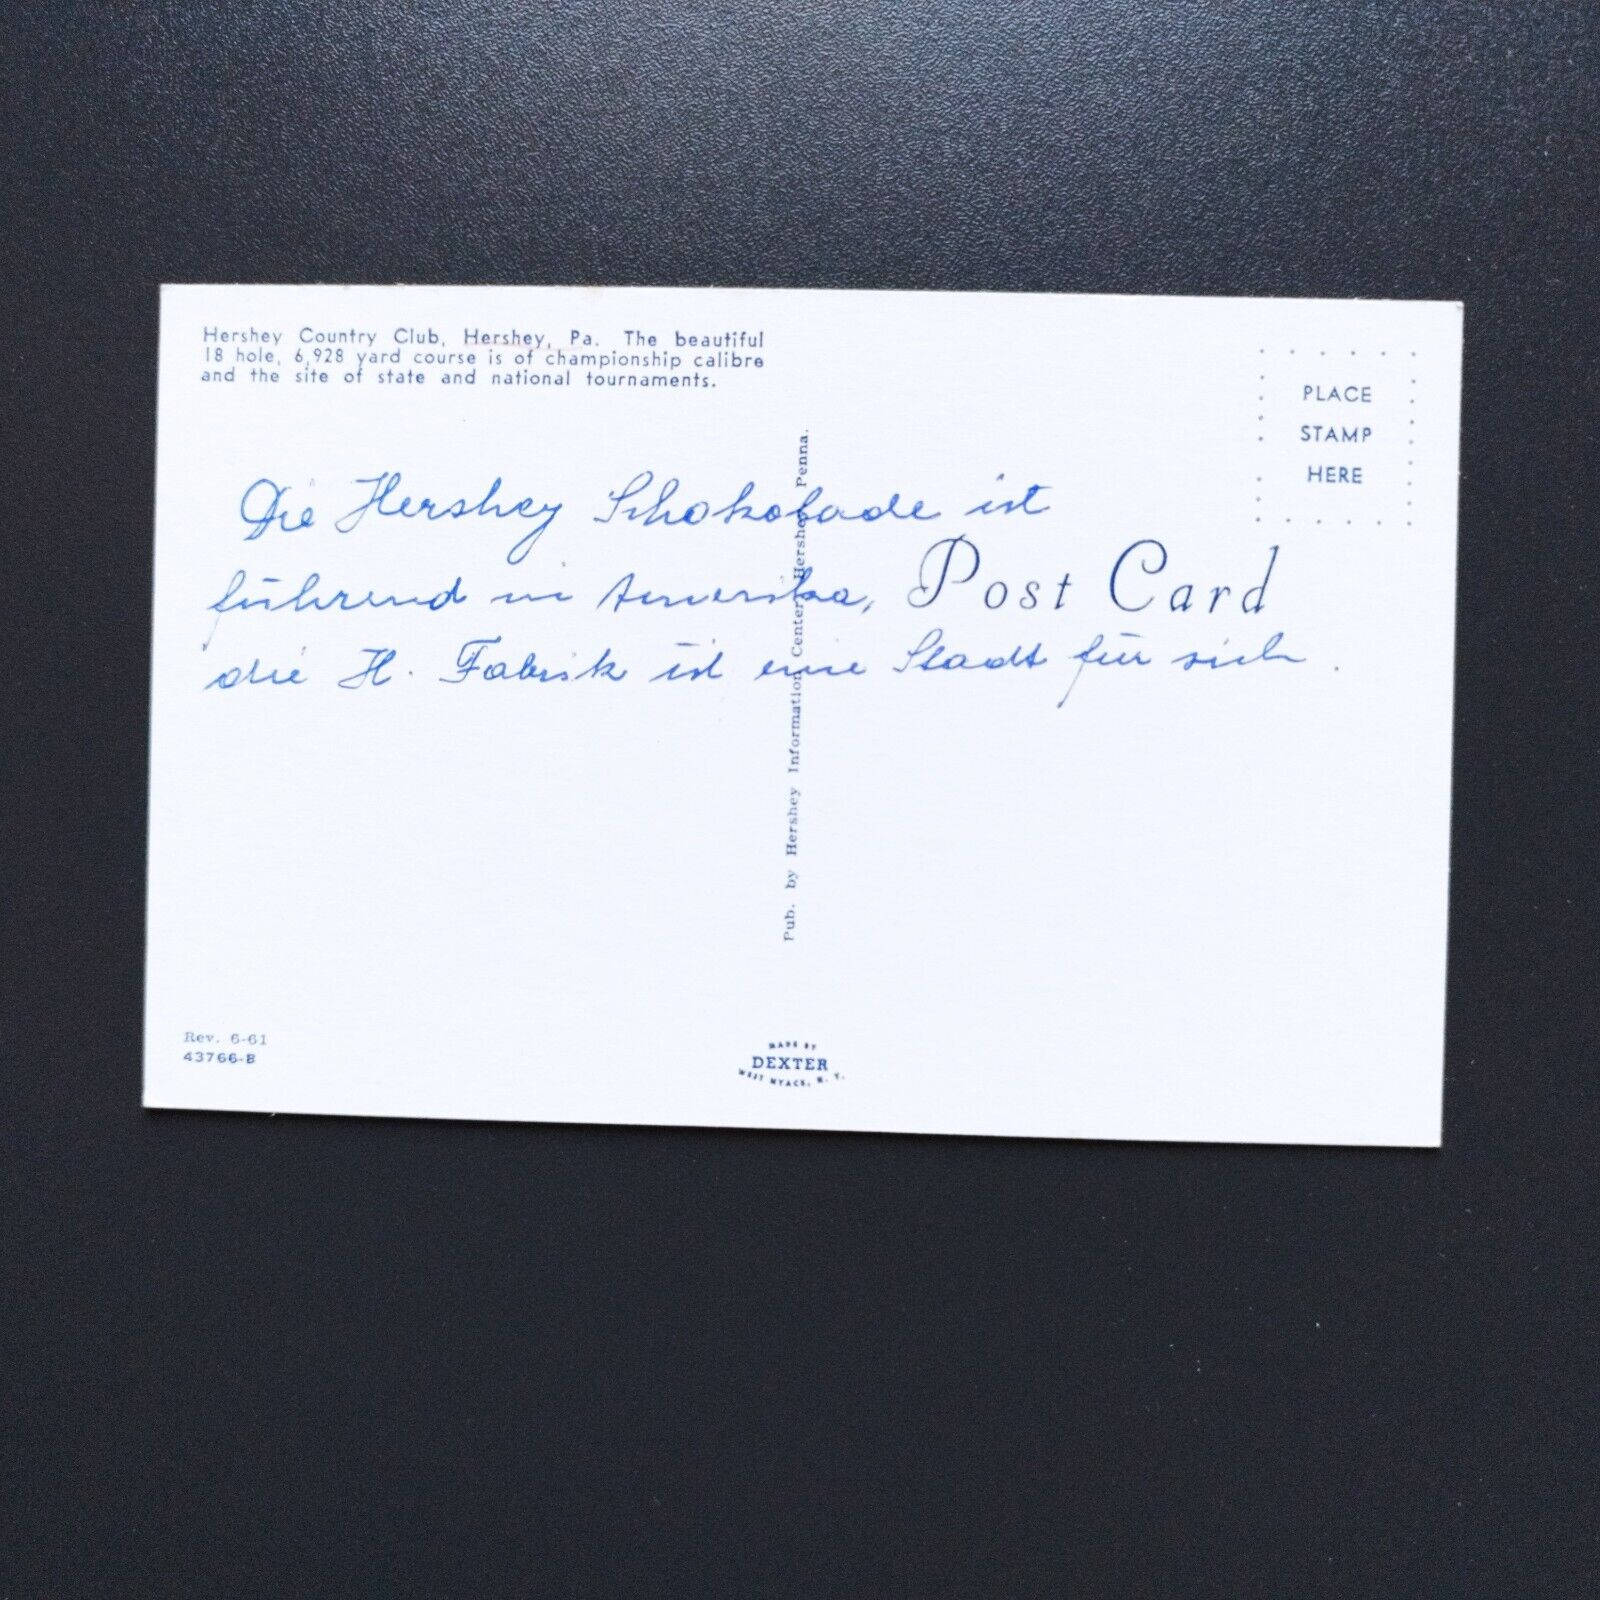 Hershey Country Club, Hershey, Pa. The beautiful
18 hole, 6,928 yard course is of championship calibre
and the site of state and national tournaments.
PLACE
STAMP
HERE
Die Hershey Schokolade ist
führend in Amerika,
die H. Fabrik ist eine Stadt für sich.
Post Card
Pub. by Hershey Information Center, Hershey, Penna.
Rev. 6-61
43766-B
MADE BY
DEXTER
WEST NYACK, N. Y.